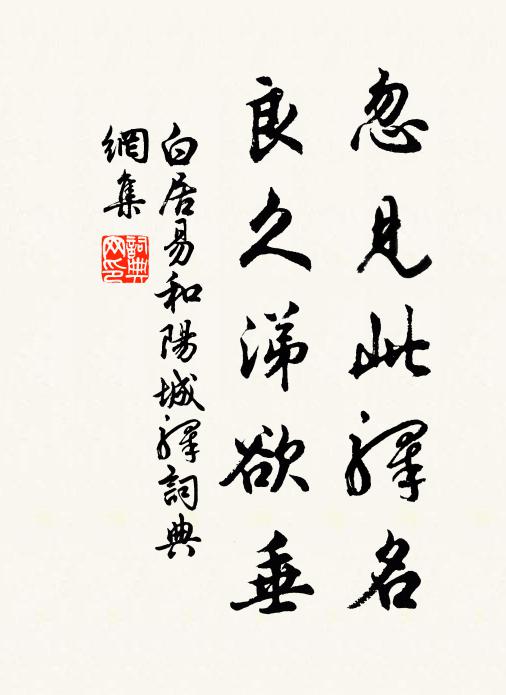 忽見此驛名
良久涕欲垂
白居易和陽城驛詞典
網集
詞典
网印